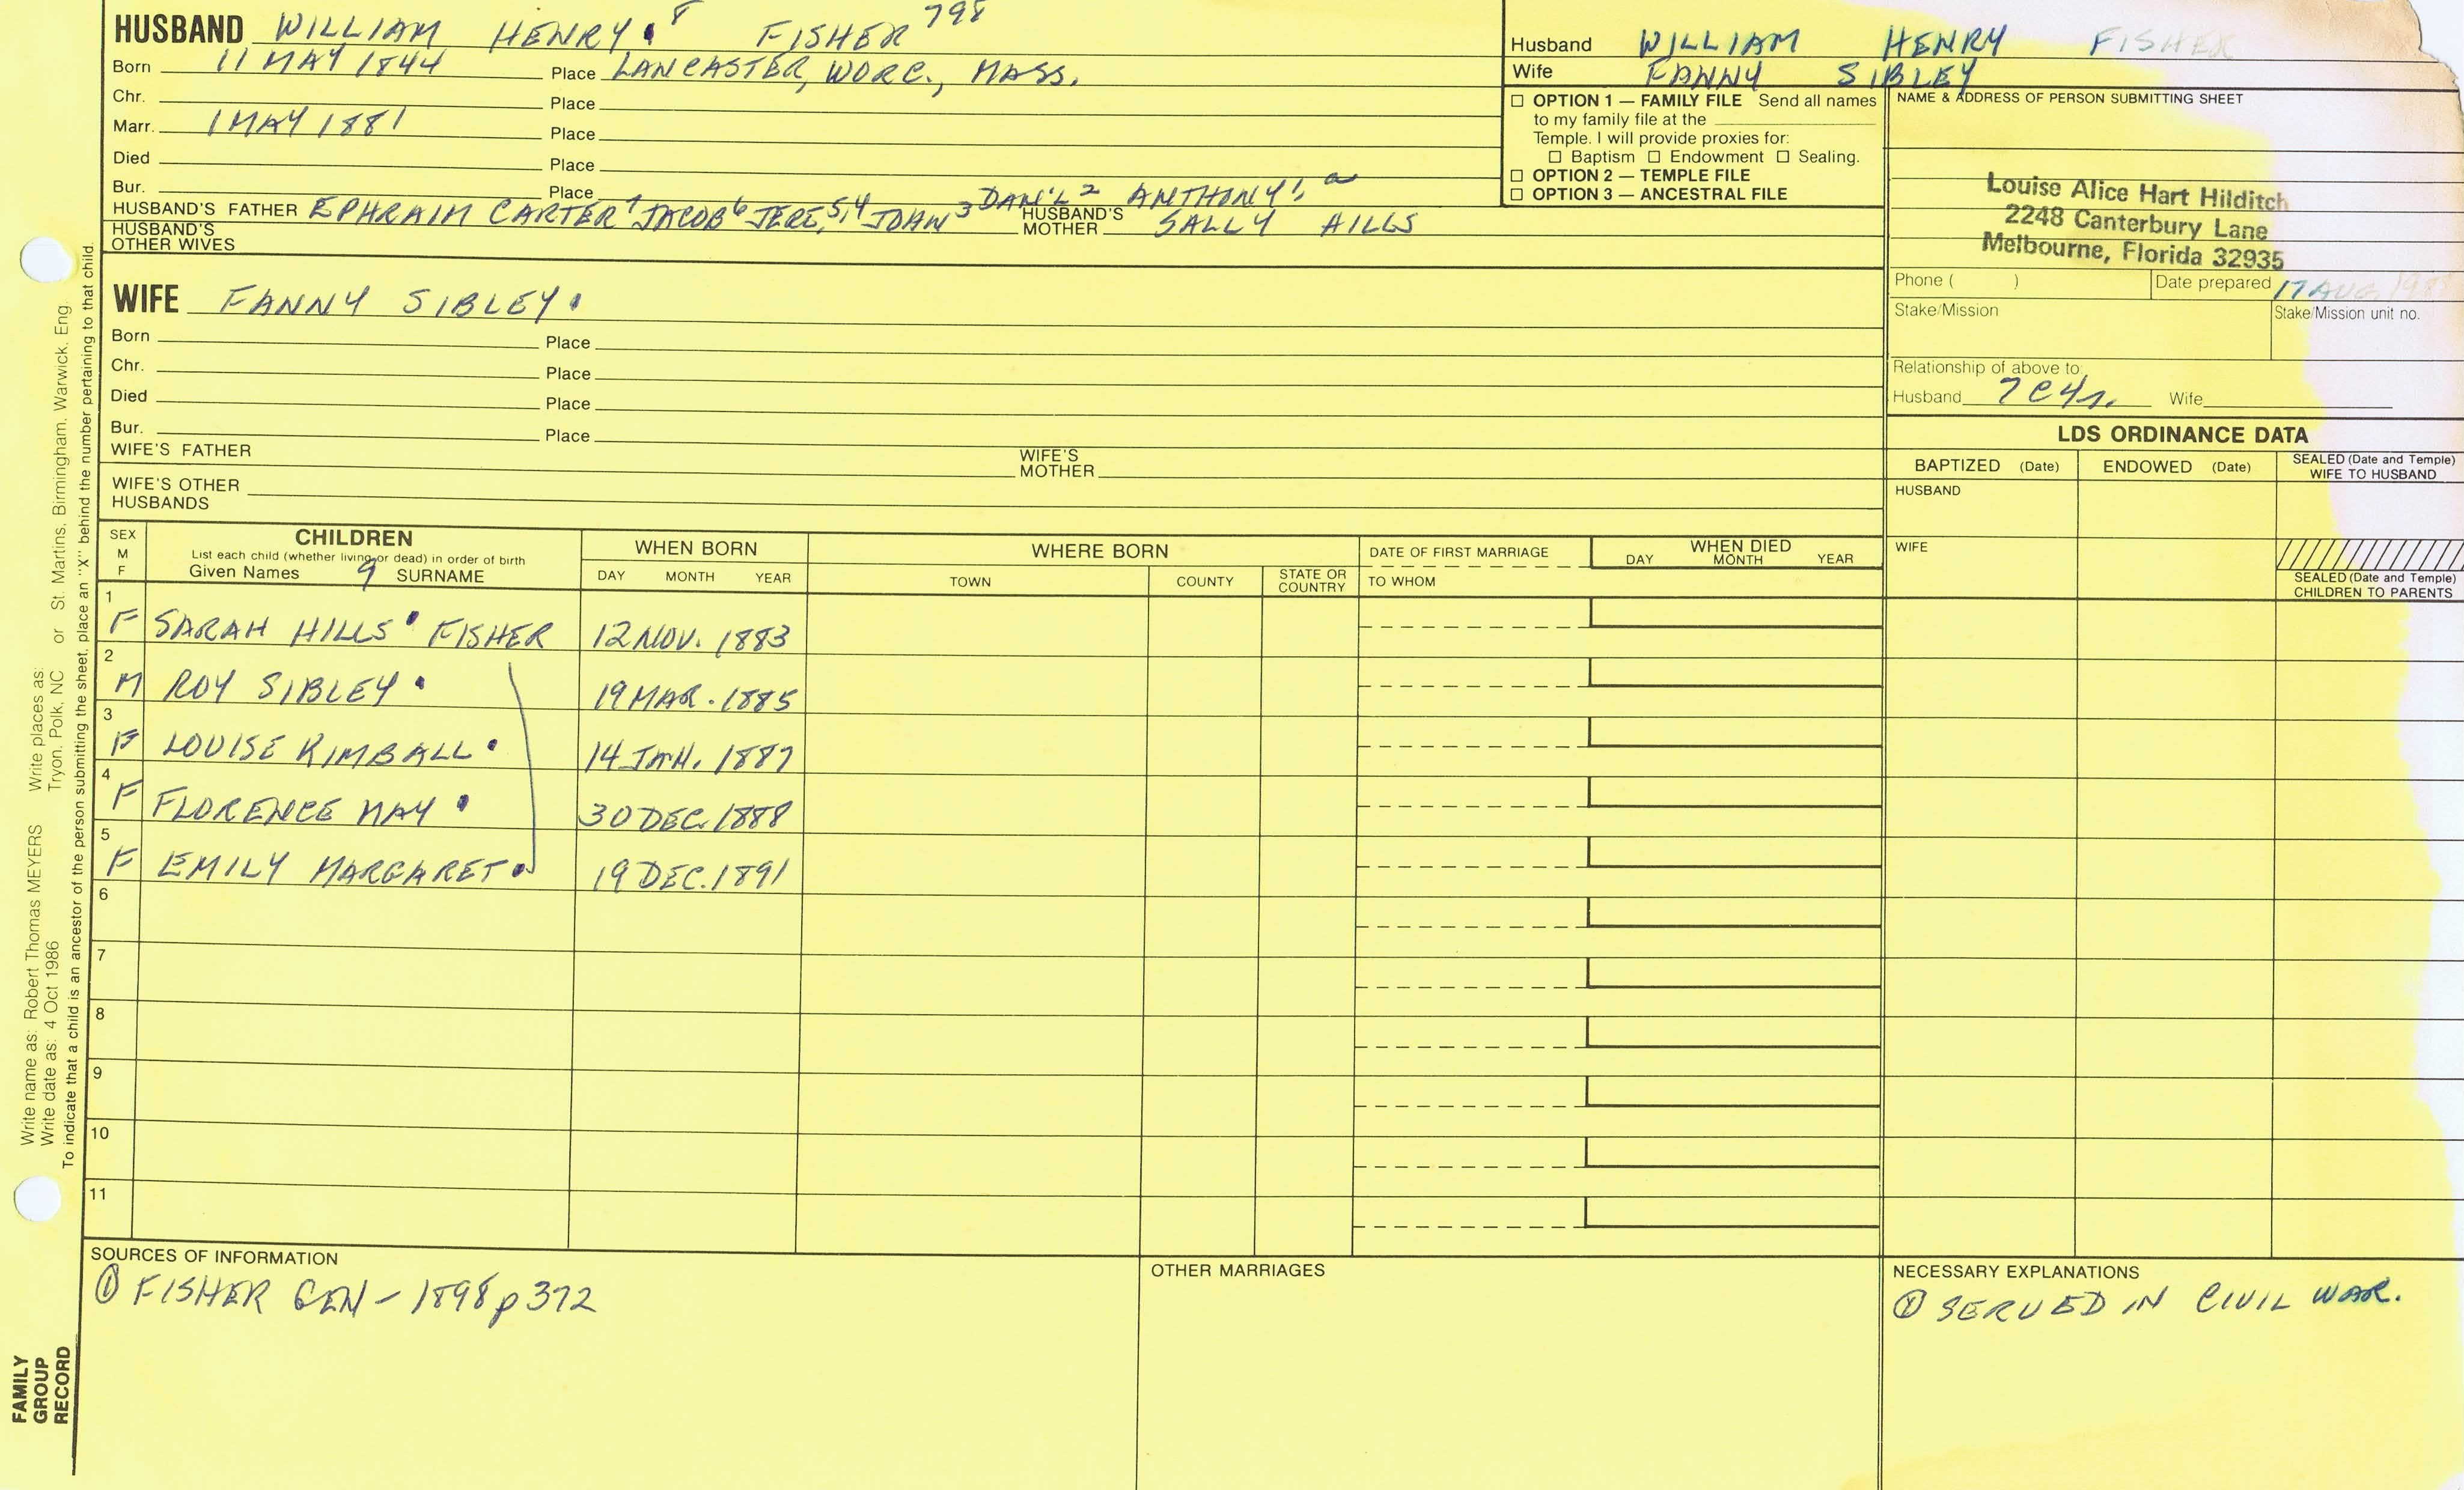 HUSBAND WILLIAM HENRY 8 FISHER 798
Born 11 MAY 1844 Place LANCASTER, WORC., MASS.
Chr. Place
Marr. 1 MAY 1881 Place
Died Place
Bur. Place
HUSBAND'S FATHER EPHRAIM CARTER7 JACOB6 JERE.5,4 JOHN3 DAN'L2 ANTHONY1 HUSBAND'S MOTHER SALLY HILLS
HUSBAND'S OTHER WIVES
Husband WILLIAM HENRY FISHER
Wife FANNY SIBLEY
☐ OPTION 1 — FAMILY FILE Send all names
to my family file at the
Temple. I will provide proxies for:
☐ Baptism ☐ Endowment ☐ Sealing.
☐ OPTION 2 — TEMPLE FILE
☐ OPTION 3 — ANCESTRAL FILE
NAME & ADDRESS OF PERSON SUBMITTING SHEET
Louise Alice Hart Hilditch
2248 Canterbury Lane
Melbourne, Florida 32935
Phone ( ) Date prepared 17 AUG
Stake/Mission Stake/Mission unit no.
Relationship of above to
Husband 7C4r. Wife
WIFE FANNY SIBLEY
Born Place
Chr. Place
Died Place
Bur. Place
WIFE'S FATHER WIFE'S MOTHER
WIFE'S OTHER HUSBANDS
LDS ORDINANCE DATA
BAPTIZED (Date) ENDOWED (Date) SEALED (Date and Temple) WIFE TO HUSBAND
HUSBAND
WIFE
SEALED (Date and Temple) CHILDREN TO PARENTS
SEX M F
CHILDREN
List each child (whether living or dead) in order of birth
Given Names 9 SURNAME
WHEN BORN
DAY MONTH YEAR
WHERE BORN
TOWN COUNTY STATE OR COUNTRY
DATE OF FIRST MARRIAGE
TO WHOM
WHEN DIED
DAY MONTH YEAR
1 F SARAH HILLS FISHER 12 NOV. 1883
2 M ROY SIBLEY 19 MAR. 1885
3 F LOUISE KIMBALL 14 JAN. 1887
4 F FLORENCE MAY 30 DEC. 1888
5 F EMILY MARGARET 19 DEC. 1891
6
7
8
9
10
11
SOURCES OF INFORMATION
① FISHER GEN - 1898 p 372
OTHER MARRIAGES
NECESSARY EXPLANATIONS
① SERVED IN CIVIL WAR.
Write name as: Robert Thomas MEYERS Write places as: or St. Martins, Birmingham, Warwick, Eng.
Write date as: 4 Oct 1986 Tryon, Polk, NC
To indicate that a child is an ancestor of the person submitting the sheet, place an "X" behind the number pertaining to that child.
FAMILY
GROUP
RECORD